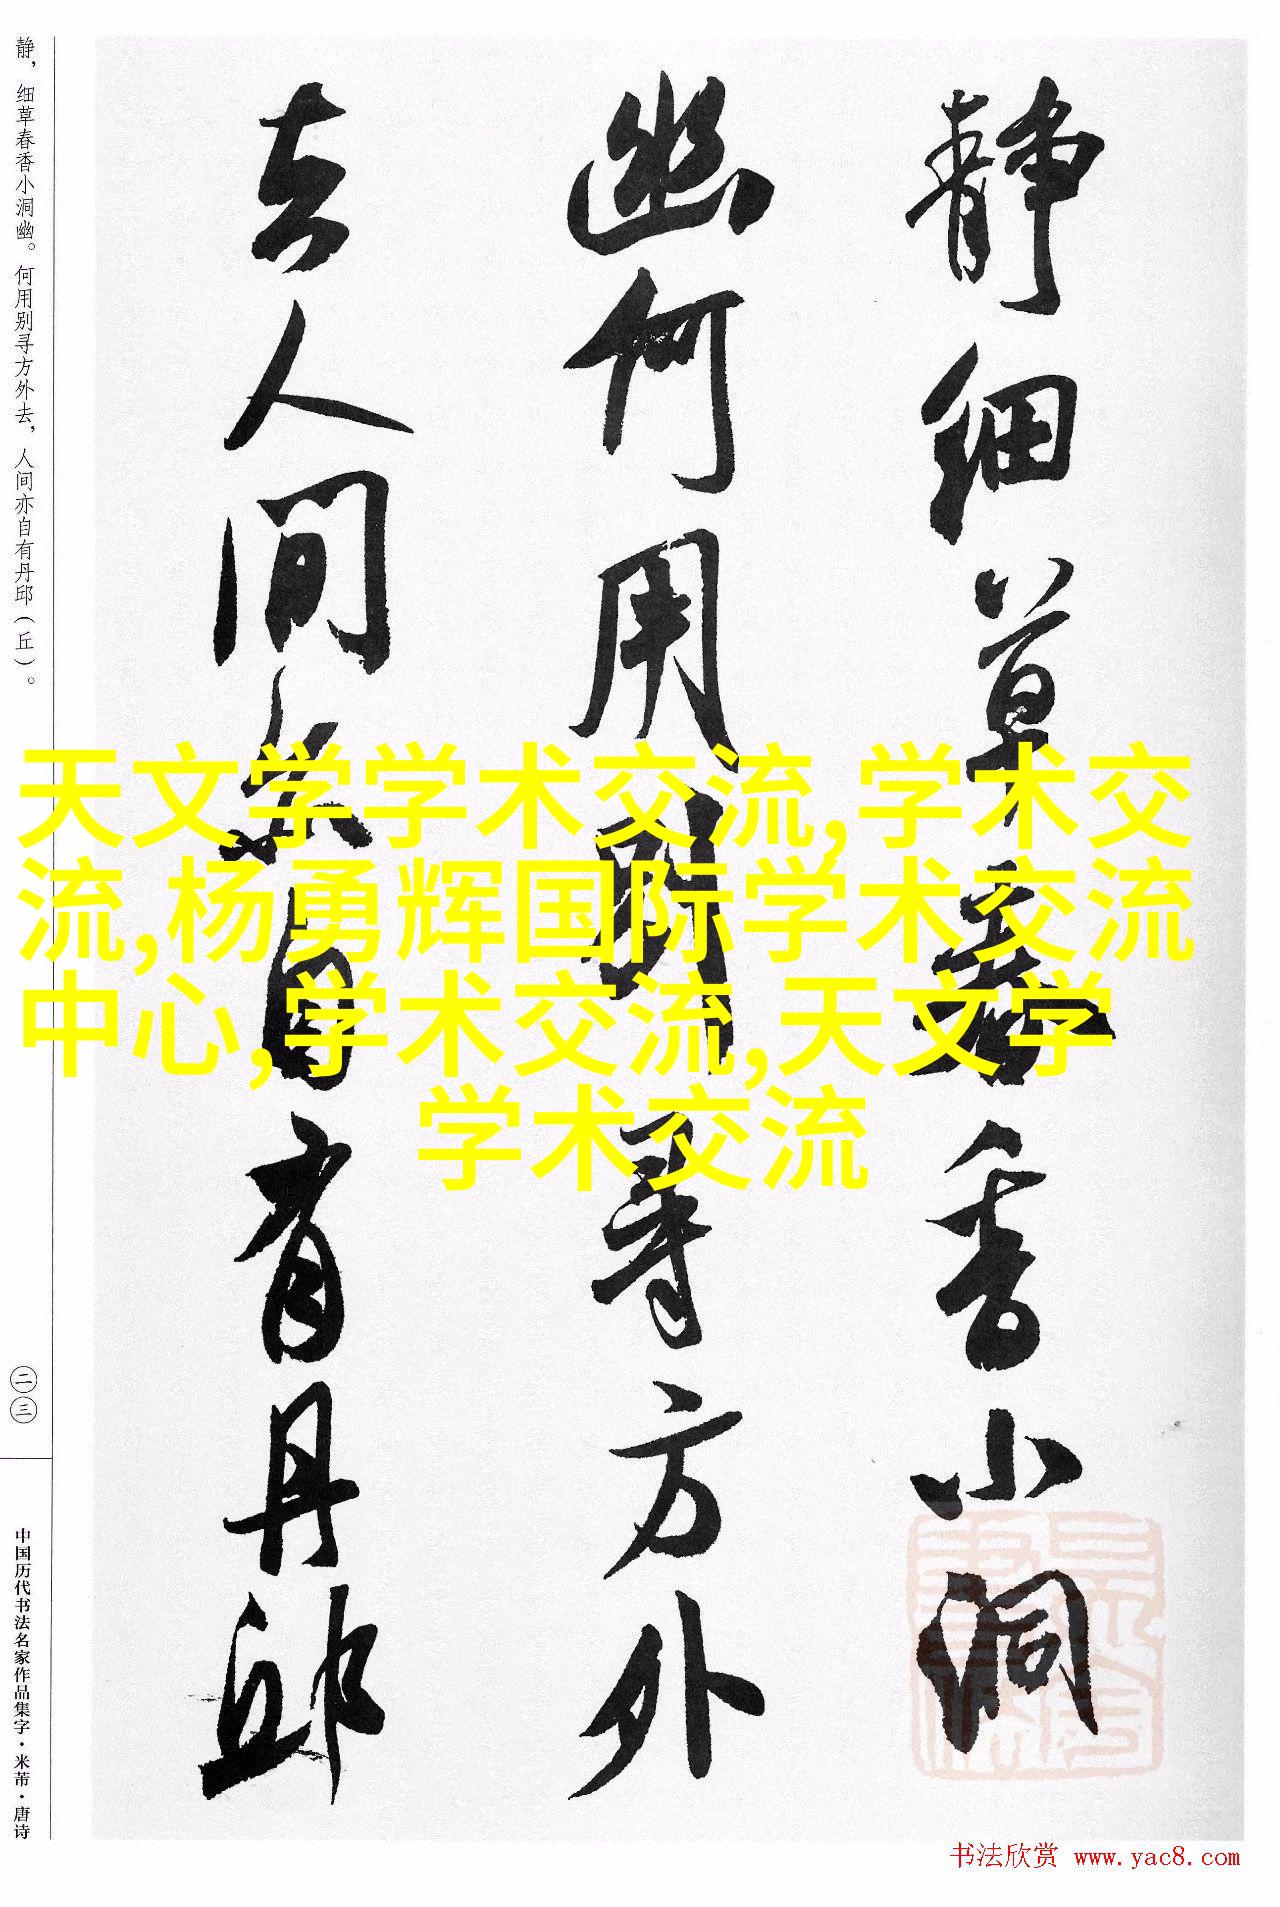 静细草春香小洞
幽何用别寻方外
去人间亦自有丹邱
静，细草春香小洞幽。何用别寻方外去，人间亦自有丹邱（丘）。
二三
中国历代书法名家作品集字·米芾·唐诗
天文学学术交流,学术交
流,杨勇辉国际学术交流
中心,学术交流,天文学
学术交流
书法欣赏 www.yac8.com